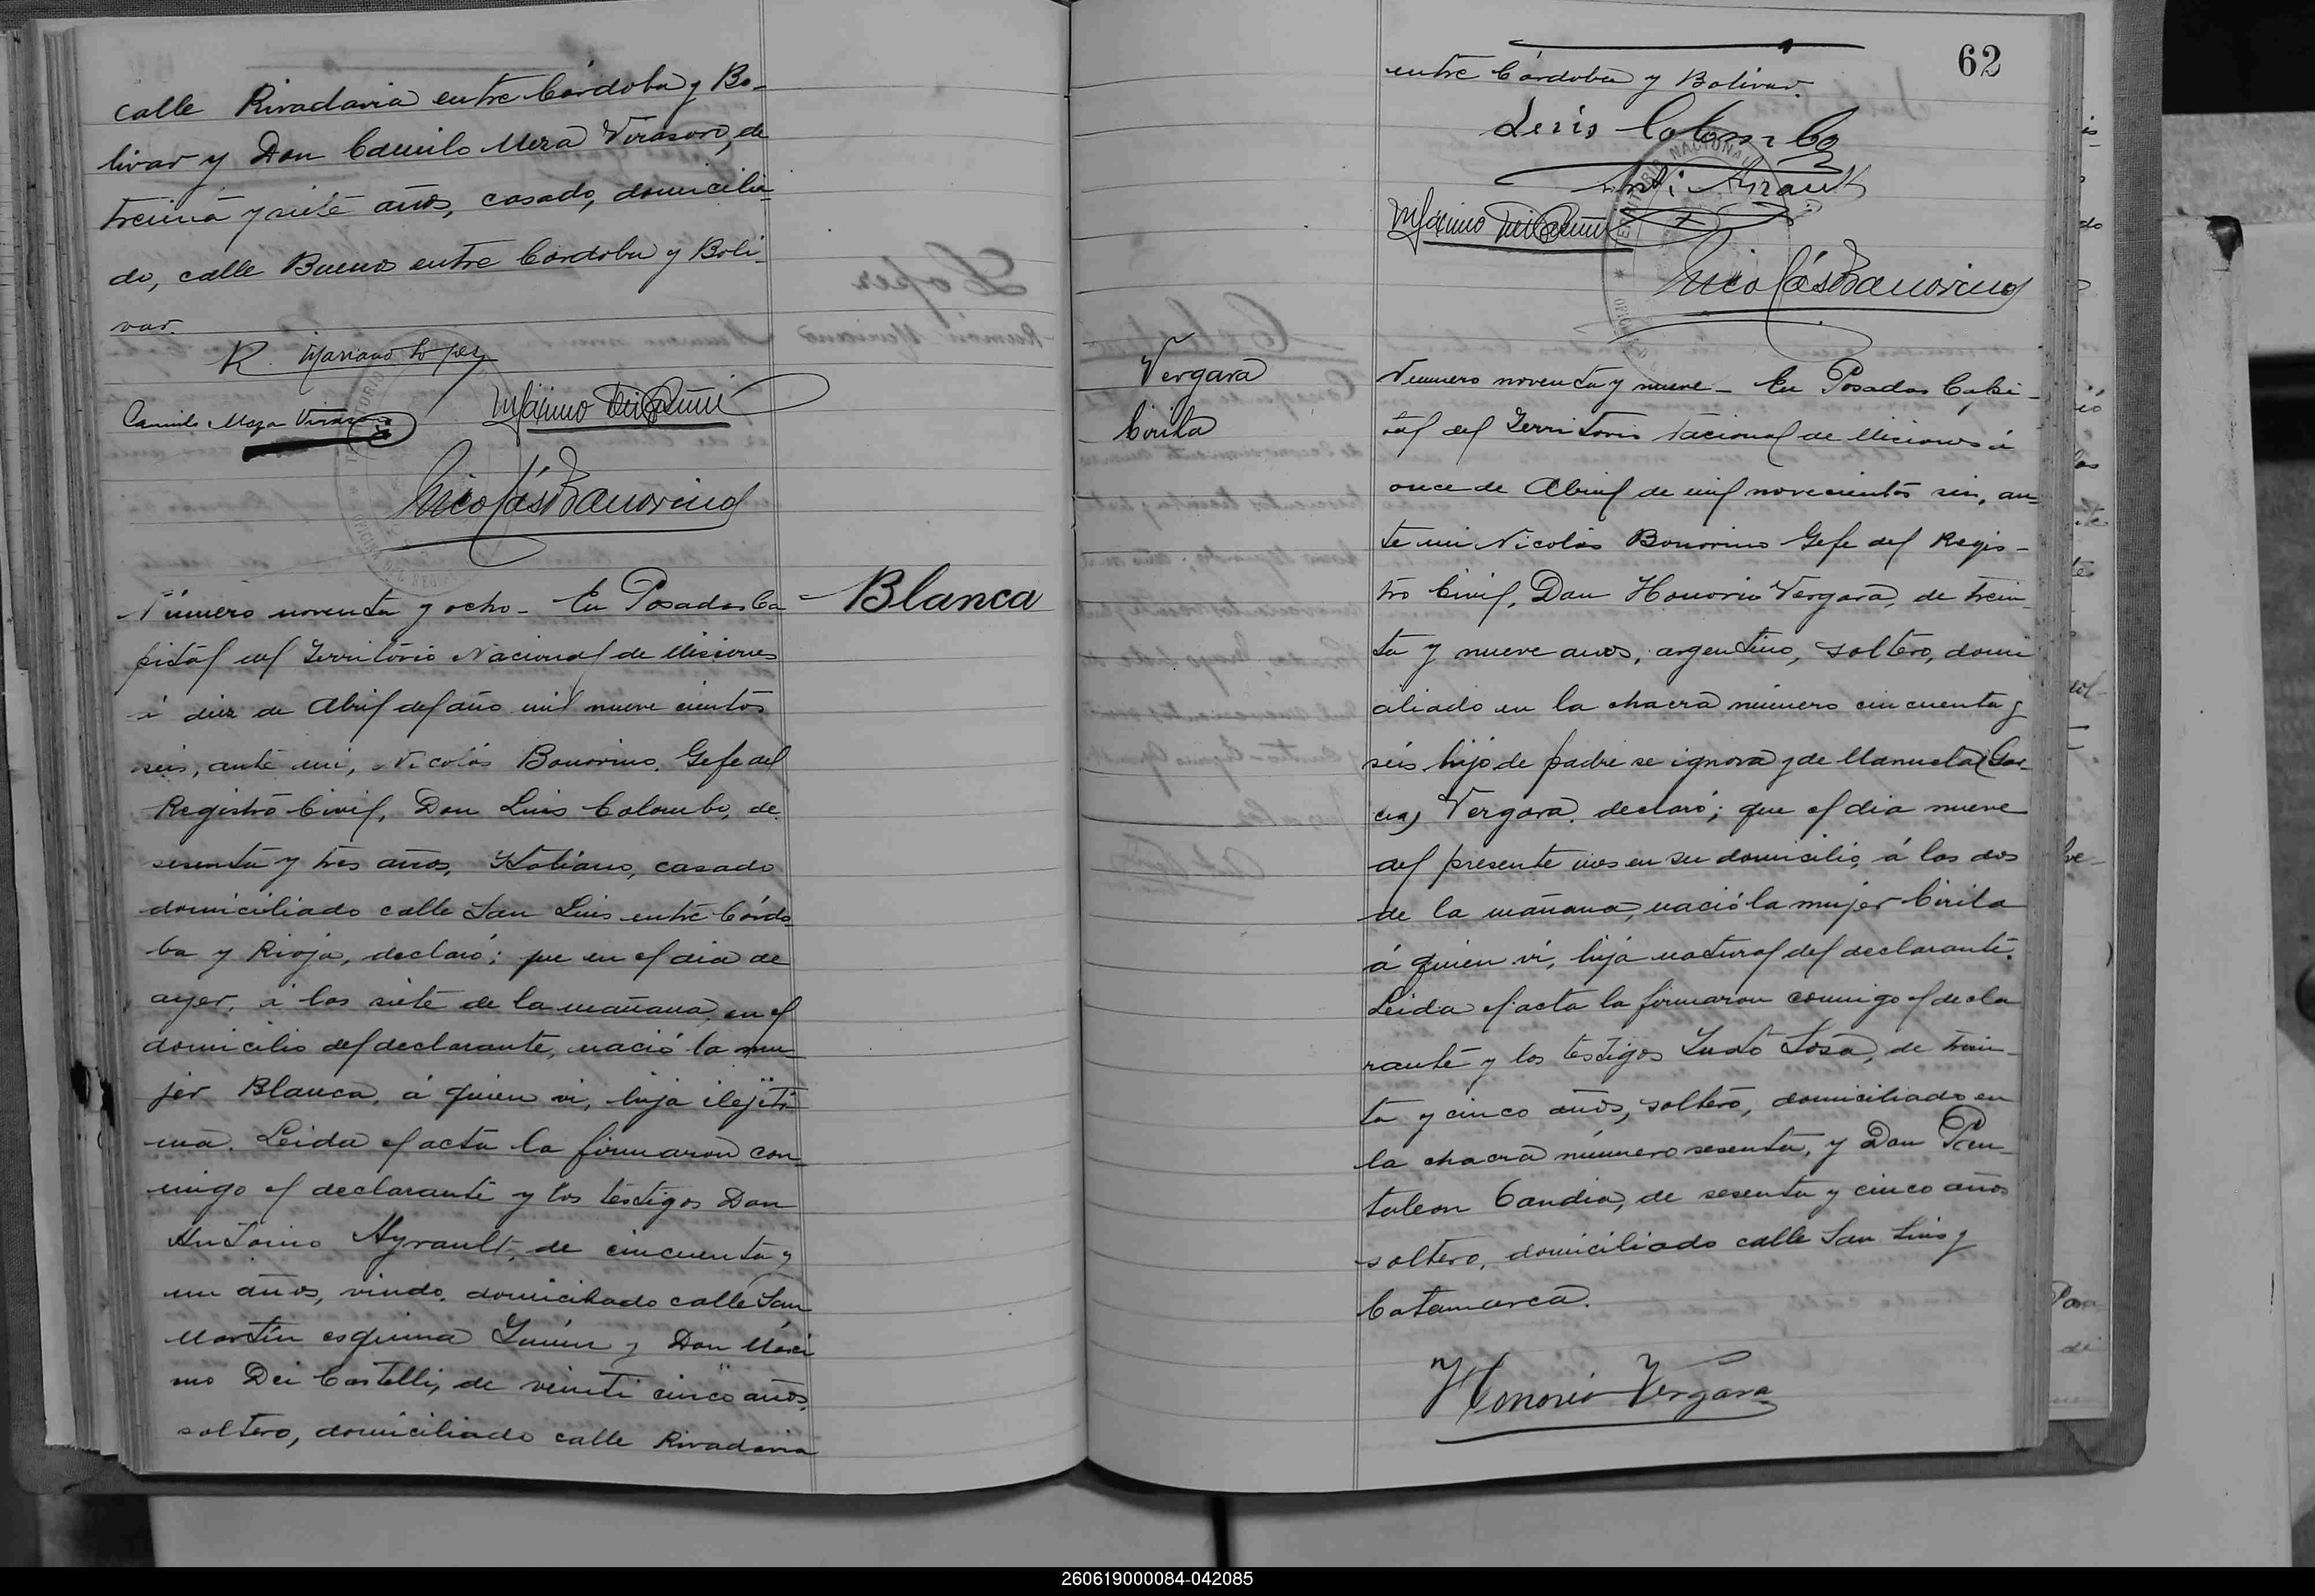 calle Rivadavia entre Córdoba y Bo-
livar y Don Camilo Meza Virasoro, de
treinta y siete años, casado, domicilia-
do, calle Bueno entre Córdoba y Boli-
var.
R. Mariano Lopez
Camilo Meza Viraso
Máximo Dei Castelli
Nicolás Bonorino
Número noventa y ocho - En Posadas Ca-
pital del Territorio Nacional de Misiones
á diez de Abril del año mil nueve cientos
seis, ante mi, Nicolás Bonorino, Gefe del
Registro Civil, Don Luis Colombo, de
sesenta y tres años, Italiano, casado
domiciliado calle San Luis entre Córdo-
ba y Rioja, declaró; que en el dia de
ayer, á las siete de la mañana, en el
domicilio del declarante, nació la mu-
jer Blanca, á quien vi, hija ilejiti-
ma. Leida el acta la firmaron con-
migo el declarante y los testigos Don
Antonio Ayrault, de cincuenta y
un años, viudo, domiciliado calle San
Martín esquina Junin y Don Máxi
mo Dei Castelli, de veinti cinco años,
soltero, domiciliado calle Rivadavia
Blanca
62
entre Córdoba y Bolivar.
Luis Colombo
Ant. Ayrault
Máximo Dei Castelli
Nicolás Bonorino
Vergara
Cirila
Número noventa y nueve - En Posadas Capi-
tal del Territorio Nacional de Misiones á
once de Abril de mil novecientos seis, an-
te mi Nicolás Bonorino Gefe del Regis-
tro Civil, Don Honorio Vergara, de trein-
ta y nueve años, argentino, soltero, domi
ciliado en la chacra número cincuenta y
seis hijo de padre se ignora y de Manuela (Gar-
cia) Vergara, declaró; que el dia nueve
del presente mes en su domicilio, á las dos
de la mañana, nació la mujer Cirila
á quien vi, hija natural del declarante.
Leida el acta la firmaron conmigo el decla
rante y los testigos Justo Sosa, de trein-
ta y cinco años, soltero, domiciliado en
la chacra número sesenta, y Don Pan-
taleon Candia, de sesenta y cinco años
soltero, domiciliado calle San Luis y
Catamarca.
Honorio Vergara
260619000084-042085